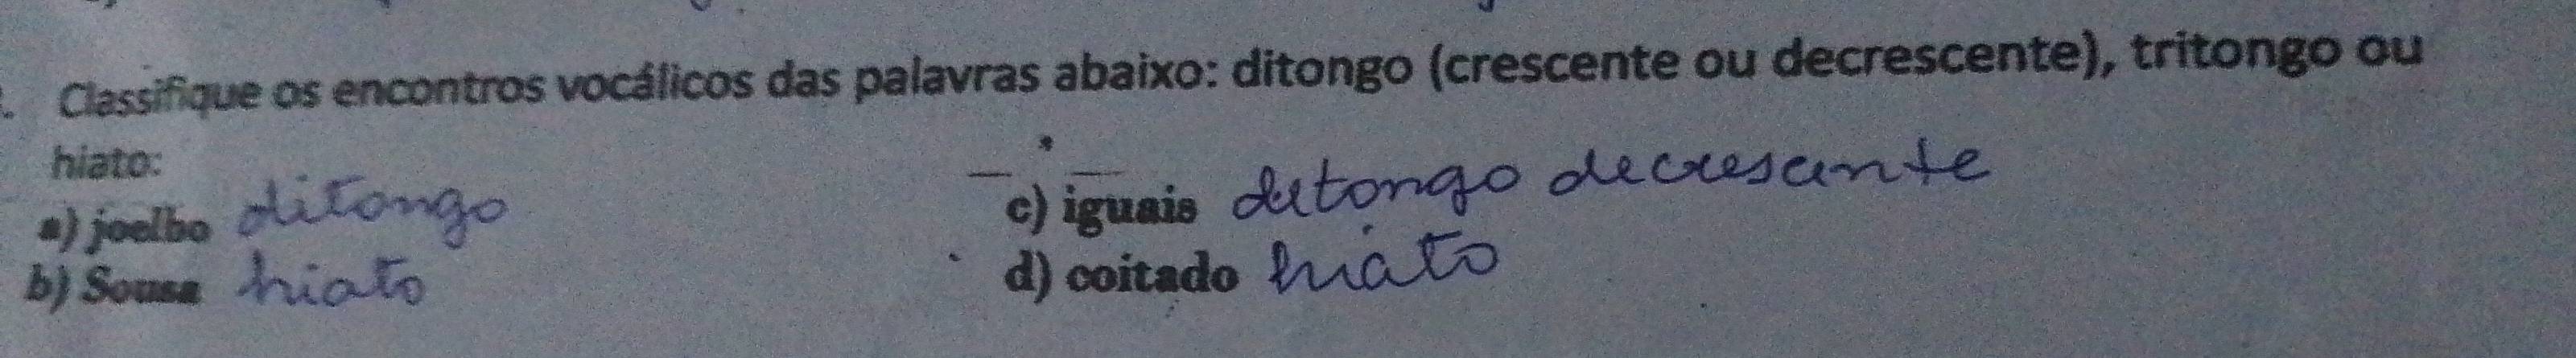 . Classifique os encontros vocálicos das palavras abaixo: ditongo (crescente ou decrescente), tritongo ou
hiato:
a) joelho ditongo
b) Sousa hiato
c) iguais ditongo decresante
d) coitado hiato